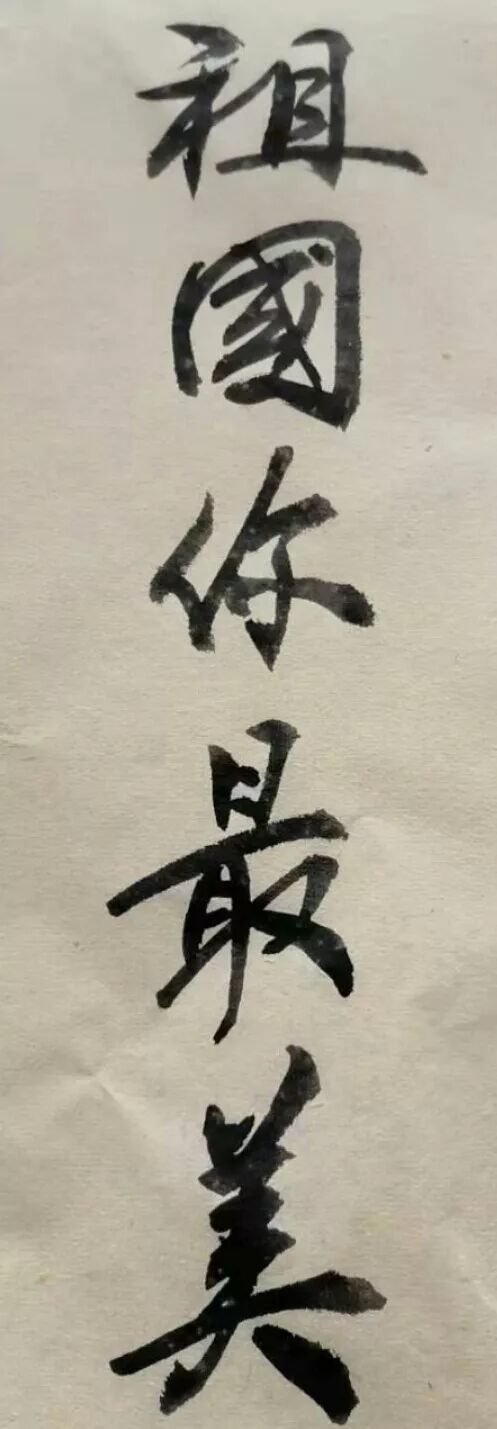 祖國你最美